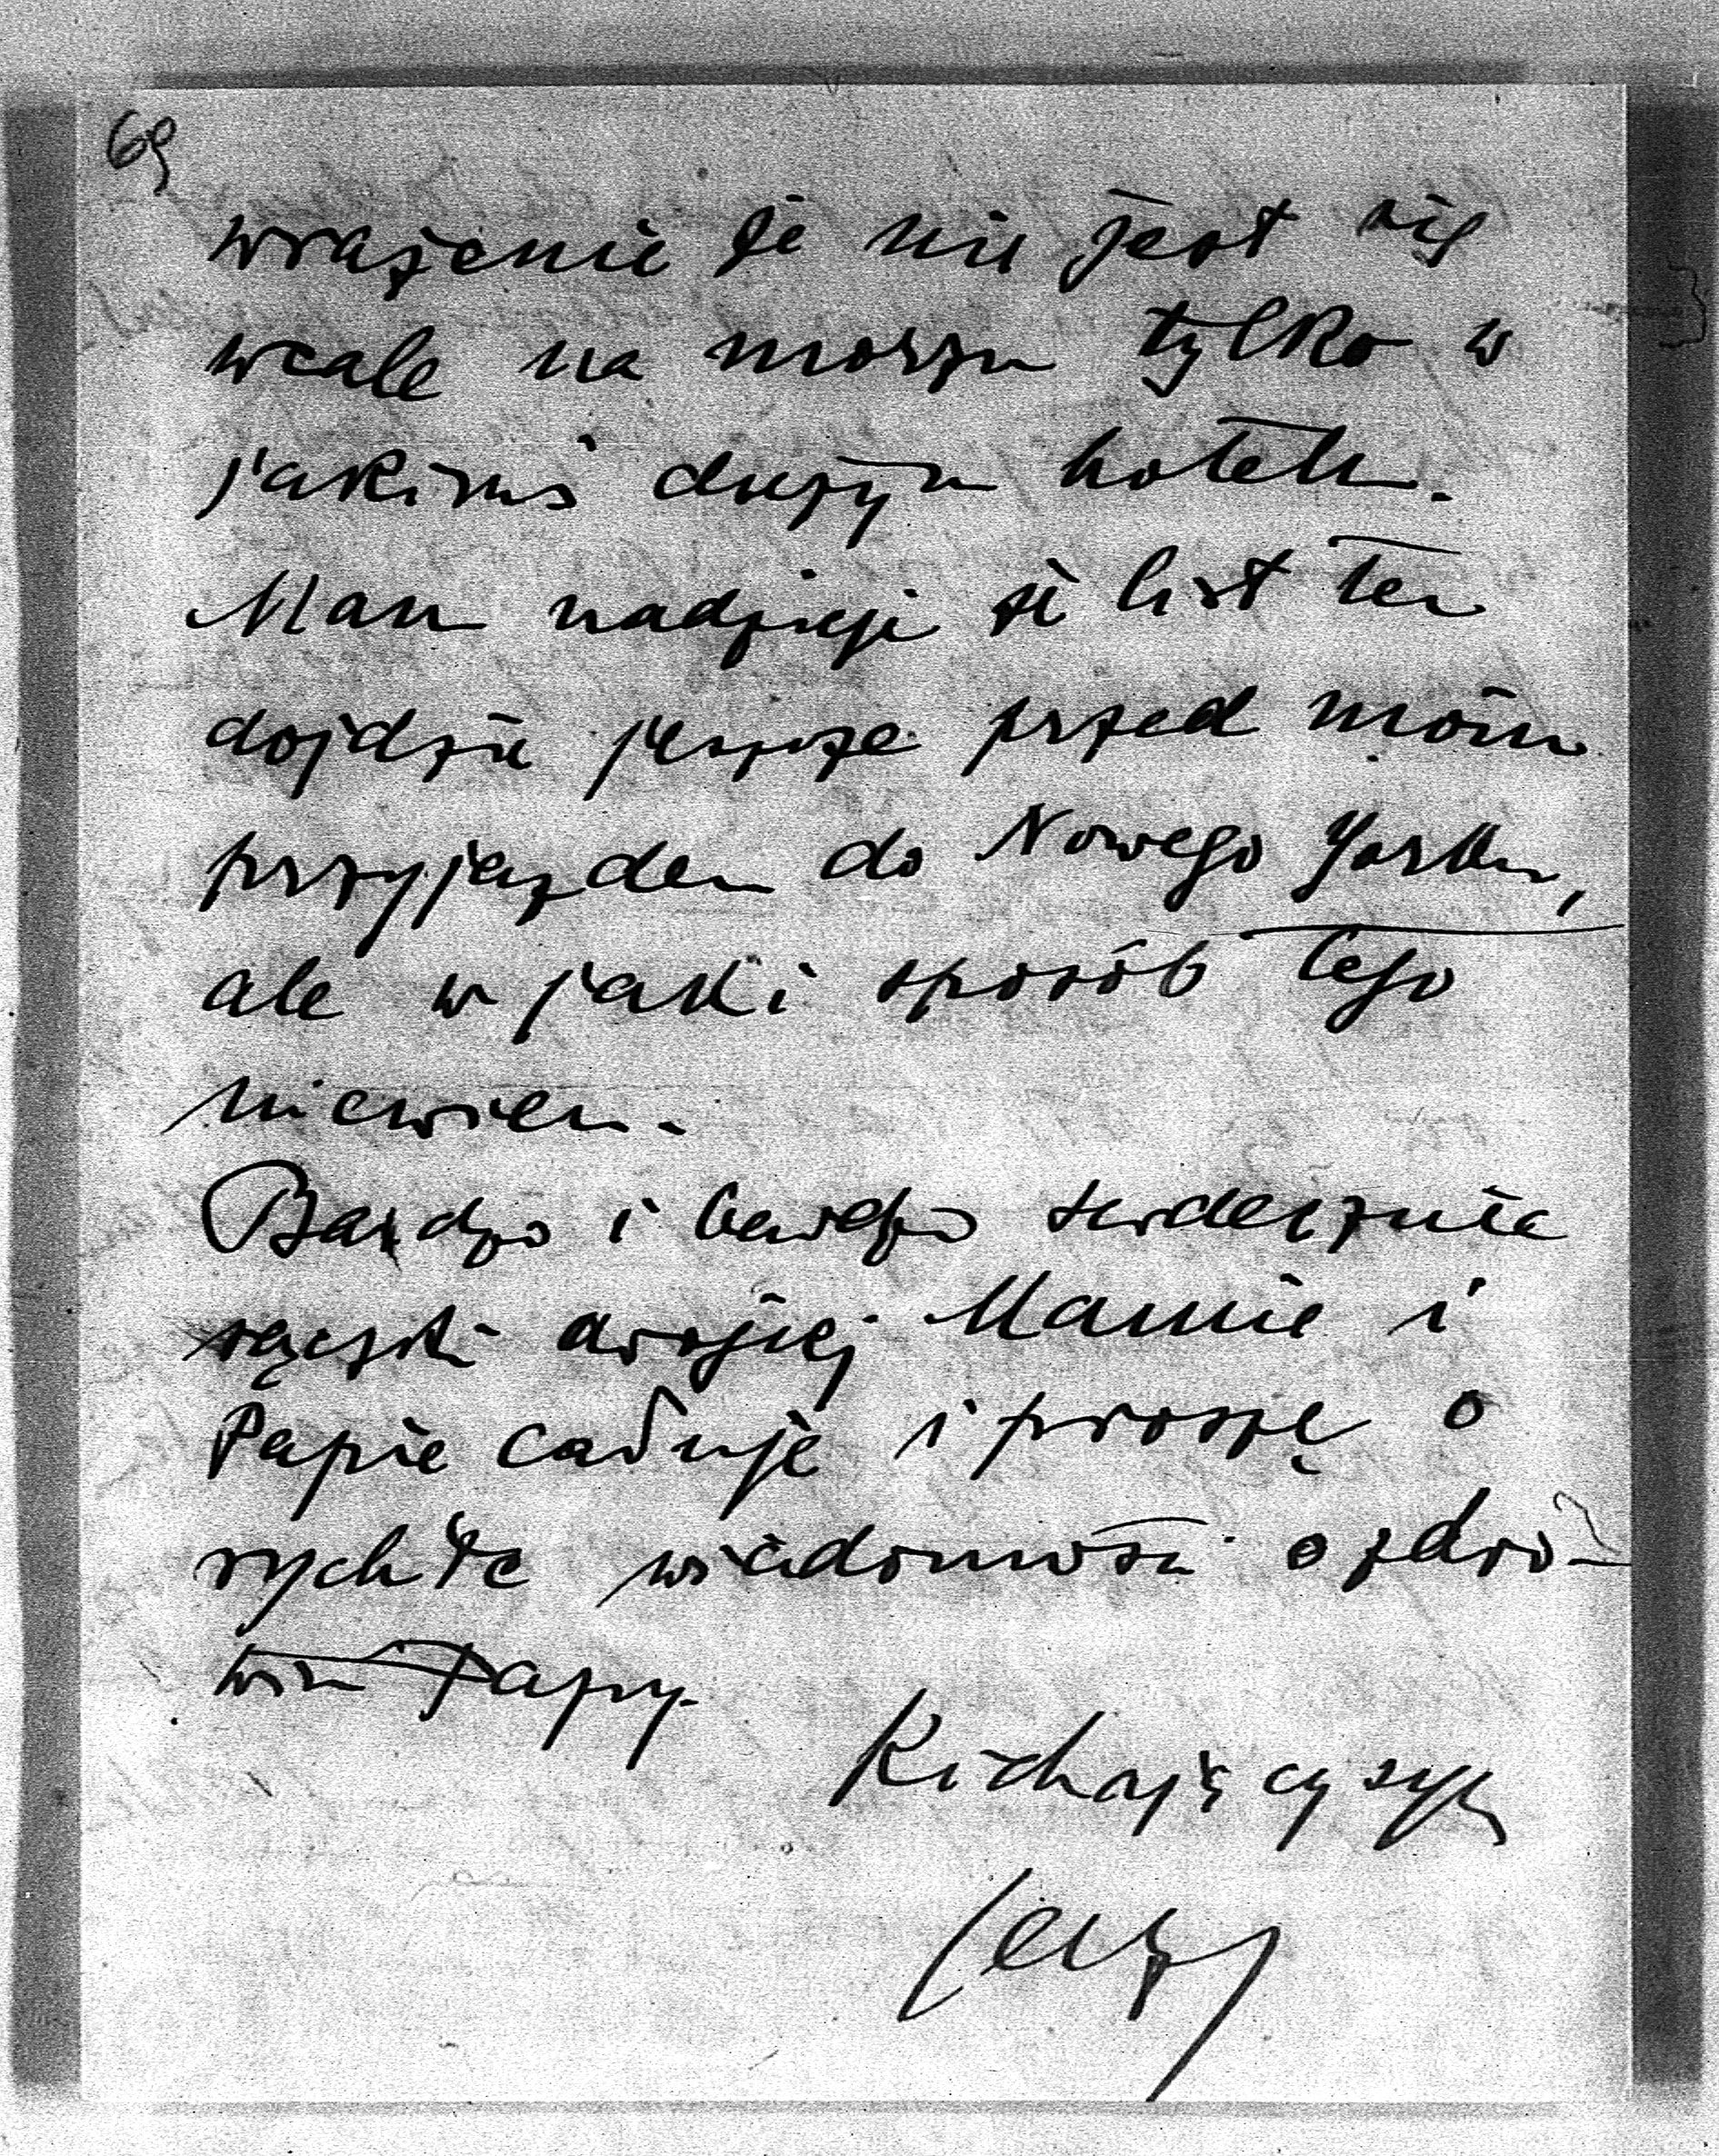 69
wrażenie że nie jest się
wcale na morzu tylko w
jakimś dużym hotelu.
Mam nadzieje że list ten
dojdzie jeszcze przed moim
przyjazdem do Nowego Yorku,
ale w jaki sposób tego
niewiem.
Bardzo i bardzo serdecznie
rączki drogiej Mamie i
Papie całuje i proszę o
rychłe wiadomości o zdro-
wiu Papy.
Kochający syn
Jerzy